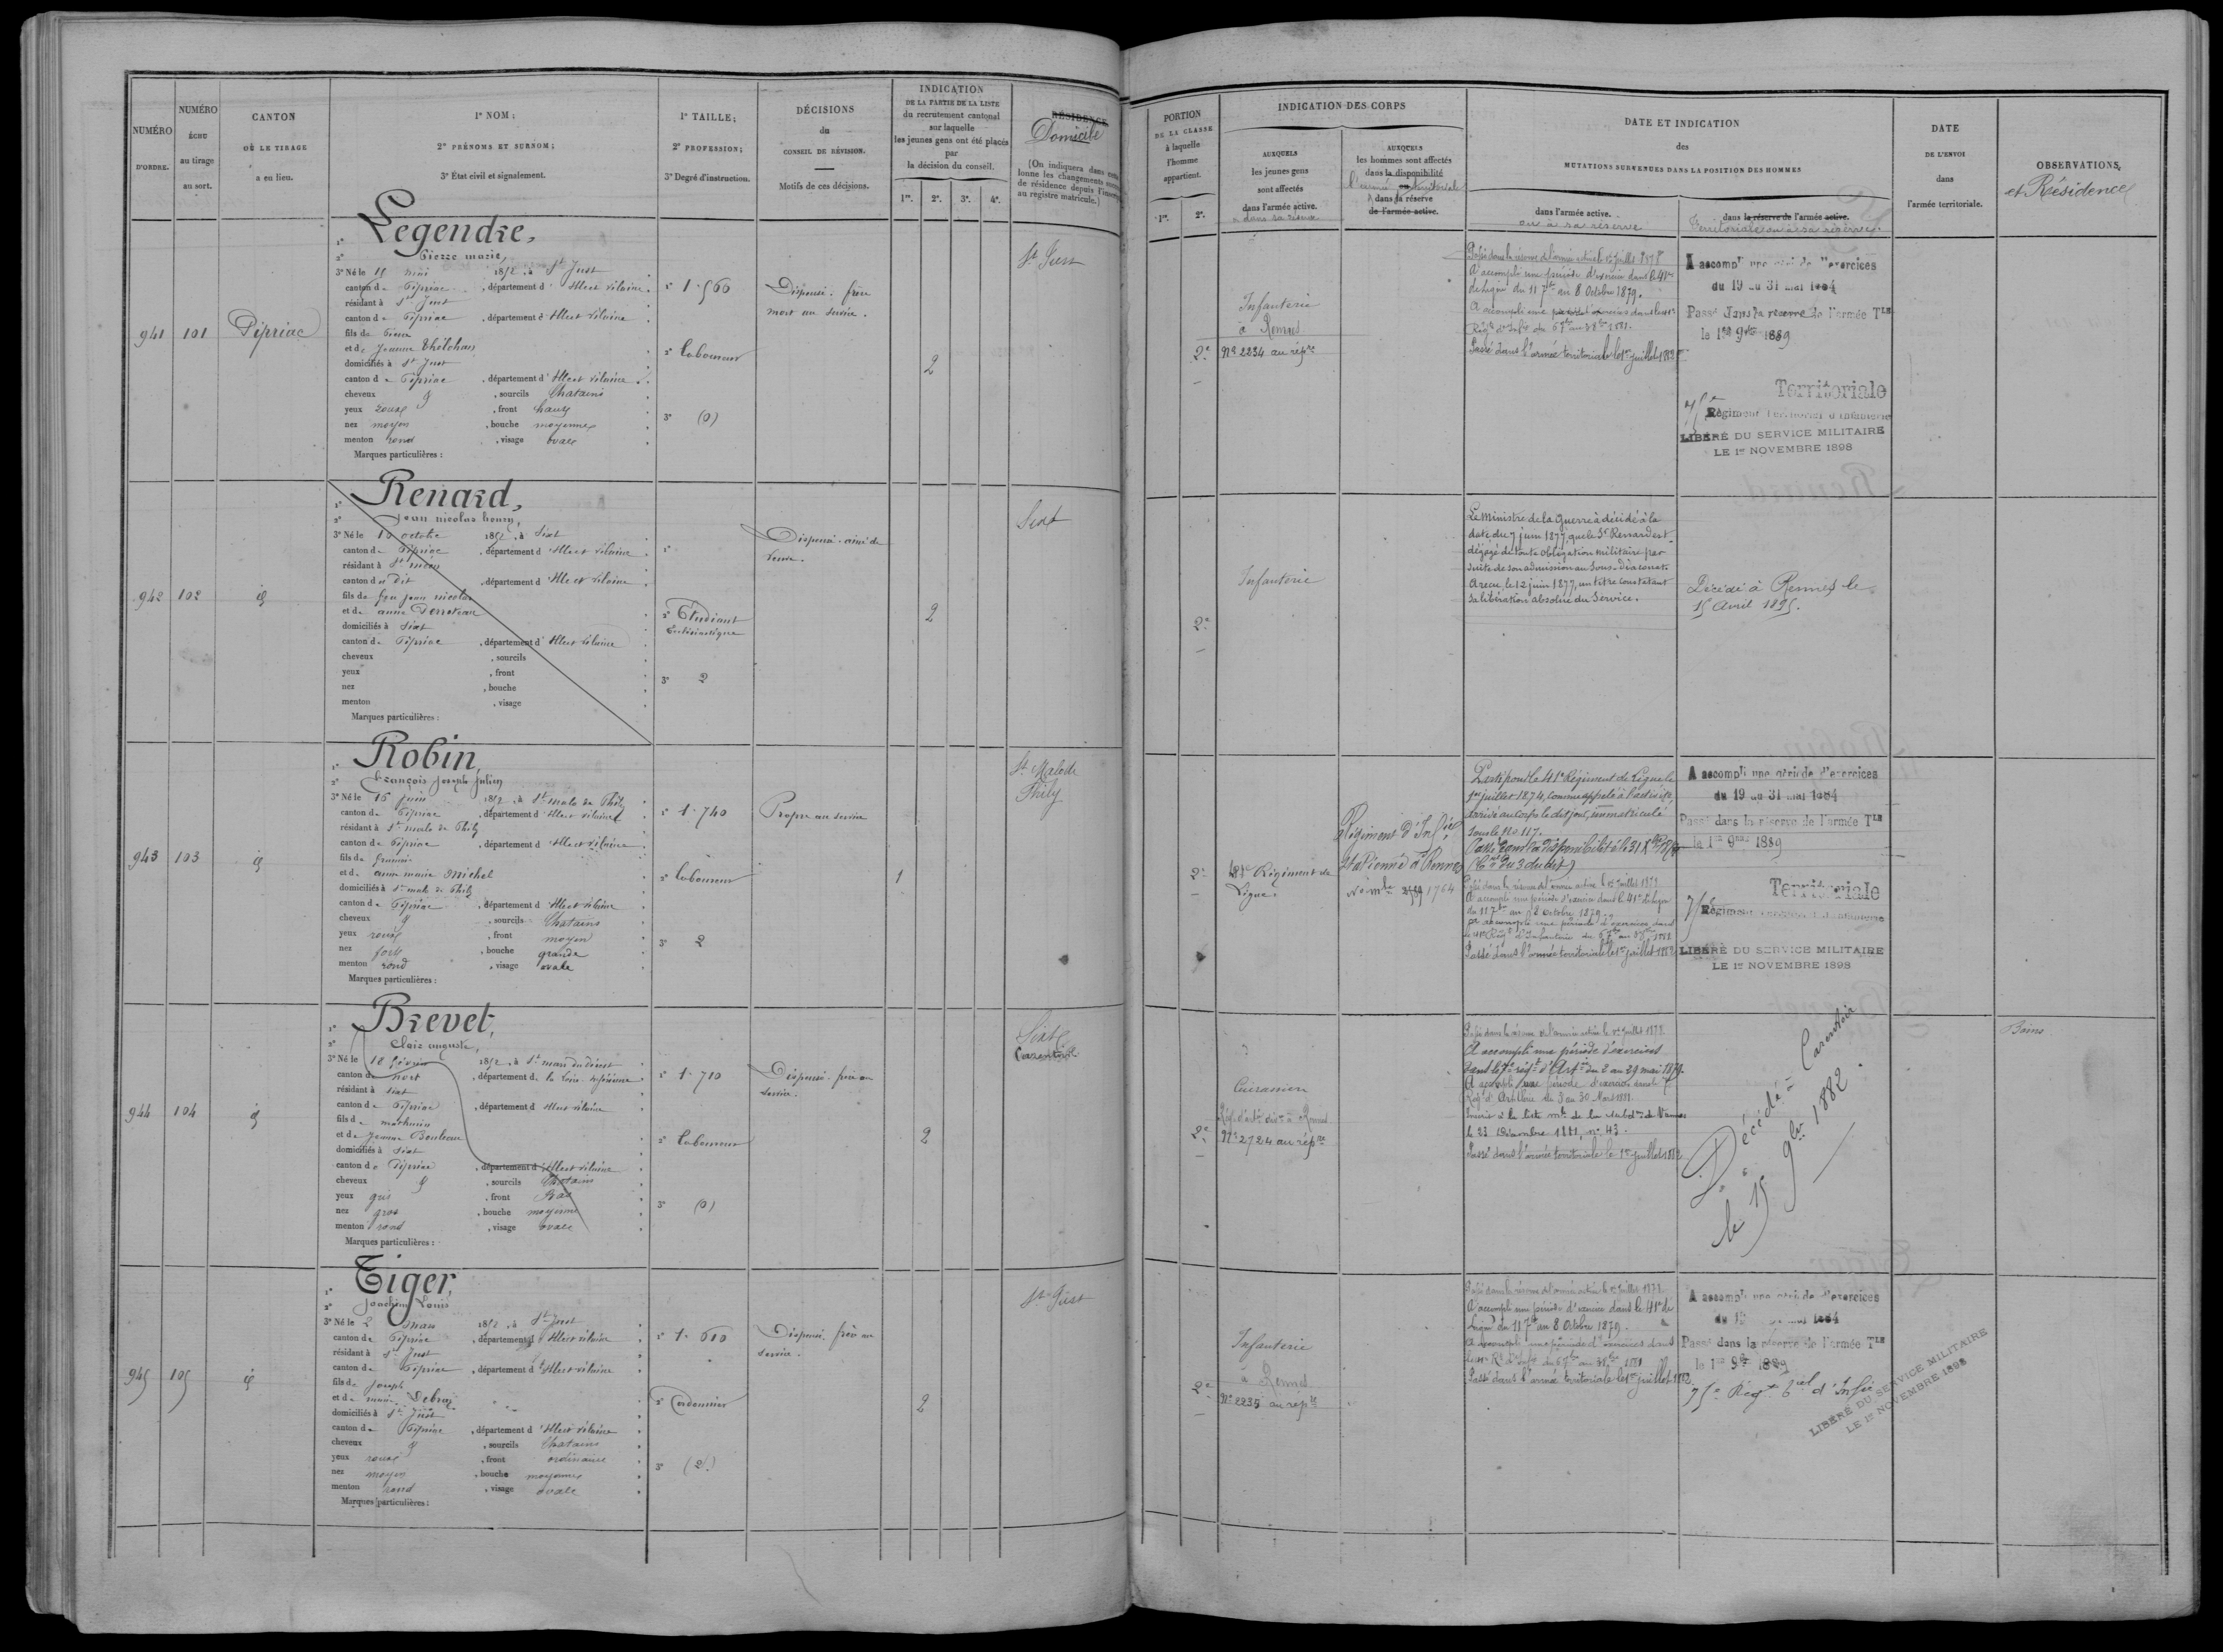 NUMÉRO
D'ORDRE.
NUMÉRO
ÉCHU
au tirage
au sort.
CANTON
OÙ LE TIRAGE
a eu lieu.
1º NOM;
2º PRÉNOMS ET SURNOM;
3º État civil et signalement.
1º TAILLE;
2º PROFESSION;
3º Degré d'instruction.
DÉCISIONS
du
CONSEIL DE RÉVISION.
Motifs de ces décisions.
INDICATION
DE LA PARTIE DE LA LISTE
du recrutement cantonal
sur laquelle
les jeunes gens ont été placés
par
la décision du conseil.
1re. 2e. 3e. 4e.
RÉSIDENCE
Domicile
(On indiquera dans
lonne les changements
de résidence depuis
au registre matricule.)
941
101
Pipriac
1º Legendre,
2º Pierre marie,
3º Né le 15 1852, à St Just
canton de Pipriac, département d'Ille et Vilaine
résidant à St Just
canton de Pipriac, département d'Ille et Vilaine
fils de Pierre
et de Jeanne
domiciliés à St Just
canton de Pipriac, département d'Ille et Vilaine
cheveux & , sourcils Chatains
yeux roux, front haut
nez moyen, bouche moyenne
menton rond, visage ovale
Marques particulières :
1º 1.560
2º laboureur
3º (0)
Dispensé. frère
mort au service.
2
St Just
942
102
id
1º Renard,
2º Jean nicolas henry,
3º Né le octobre 1852, à Sixt
canton de Pipriac, département d'Ille et Vilaine
résidant à St méen
canton de Dit, département d'Ille et Vilaine
fils de feu jean nicolas
et de anne
domiciliés à Sixt
canton de Pipriac, département d'Ille et Vilaine
cheveux , sourcils
yeux , front
nez , bouche
menton , visage
Marques particulières :
1º
2º Etudiant
Ecclésiastique
3º 2
Dispensé. ainé de
veuve.
2
Sixt
943
103
id
1º Robin,
2º François Joseph Julien
3º Né le 16 juin 1852, à St malo de Phily
canton de Pipriac, département d'Ille et Vilaine
résidant à St malo de Phily
canton de Pipriac, département d'Ille et Vilaine
fils de
et de anne marie Michel
domiciliés à St malo de Phily
canton de Pipriac, département d'Ille et Vilaine
cheveux & , sourcils Chatains
yeux roux, front moyen
nez fort, bouche grande
menton rond, visage ovale
Marques particulières :
1º 1.740
2º laboureur
3º 2
Propre au service
1
St Malo de
Phily
944
104
id
1º Brevet,
2º Clair auguste,
3º Né le 18 février 1852, à St mars du désert
canton de nort, département de la Loire inférieure
résidant à Sixt
canton de Pipriac, département d'Ille et Vilaine
fils de mathurin
et de Jeanne Bouleau
domiciliés à Sixt
canton de Pipriac, département d'Ille et Vilaine
cheveux & , sourcils Chatains
yeux gris, front Bas
nez gros, bouche moyenne
menton rond, visage ovale
Marques particulières :
1º 1.710
2º laboureur
3º (0)
Dispensé. frère au
service.
2
Sixt
Carentoir
945
105
id
1º Tiger,
2º Joachim Louis
3º Né le 2 mars 1852, à St Just
canton de Pipriac, département d'Ille et Vilaine
résidant à St Just
canton de Pipriac, département d'Ille et Vilaine
fils de Joseph
et de marie Debray
domiciliés à St Just
canton de Pipriac, département d'Ille et Vilaine
cheveux & , sourcils Chatains
yeux roux, front ordinaire
nez moyen, bouche moyenne
menton rond, visage ovale
Marques particulières :
1º 1.610
2º Cordonnier
3º (2)
Dispensé. frère au
service.
2
St Just
PORTION
DE LA CLASSE
à laquelle
l'homme
appartient.
1re. 2e.
INDICATION DES CORPS
AUXQUELS
les jeunes gens
sont affectés
dans l'armée active.
ou dans sa réserve
AUXQUELS
les hommes sont affectés
dans la disponibilité
ou
l'armée territoriale
dans la réserve
de l'armée active.
DATE ET INDICATION
des
MUTATIONS SURVENUES DANS LA POSITION DES HOMMES
dans l'armée active.
ou à sa réserve
dans la réserve de l'armée active.
Territoriale ou à sa réserve.
DATE
DE L'ENVOI
dans
l'armée territoriale.
OBSERVATIONS,
et Résidence
2e
Infanterie
à Rennes
Nº 2234 au répre
Passé dans la réserve de l'armée active le 1er juillet 1878
A accompli une période d'exercices dans le 41e
de ligne du 11 7bre au 8 Octobre 1879.
A accompli une période d'exercices dans le 41e
Régt d'Infie du 6 7bre au 1881.
Passé dans l'armée territoriale le 1er juillet 1882
A accompli une période d'exercices
du 19 au 31 mai 1884
Passé dans la réserve de l'armée Tle
le 1er 9bre 1889
Territoriale
75e Régiment territorial d'infanterie
LIBÉRÉ DU SERVICE MILITAIRE
LE 1er NOVEMBRE 1898
2e
Infanterie
Le Ministre de la Guerre à décidé à la
date du 7 juin 1877, que le Sr Renard est
dégagé de toute obligation militaire par
suite de son admission au Sous-diaconat.
A reçu, le 12 juin 1877, un titre constatant
sa libération absolue du Service.
Décédé à Rennes le
15 avril 1895.
2e
41e Régiment de
Ligne.
Régiment d'Infie
Stationné à Rennes
Nº mle 1764
Parti pour le 41e Régiment de Ligne le
1er juillet 1874, comme appelé à l'activité,
arrivé au Corps le dit jour, immatriculé
sous le No 117.
Passé dans la disponibilité le 31
(Cre du 3 dudit)
Passé dans la réserve de l'armée active le 1er juillet 1878
A accompli une période d'exercices dans le 41e de ligne
du 11 7bre au 8 octobre 1879.
A accompli une période d'exercices dans
le 41e Régt d'Infanterie du 6 7bre au 1881
Passé dans l'armée territoriale le 1er juillet 1882
A accompli une période d'exercices
du 19 au 31 mai 1884
Passé dans la réserve de l'armée Tle
le 1er 9bre 1889
Territoriale
75e Régiment territorial d'infanterie
LIBÉRÉ DU SERVICE MILITAIRE
LE 1er NOVEMBRE 1898
2e
Cuirassier
Régt d'artie à Rennes
Nº 2724 au répre
Passé dans la réserve de l'armée active le 1er juillet 1878
A accompli une période d'exercices
dans le 7e régt d'Artie du 2 au 29 mai 1879.
A accompli une période d'exercices dans le 7e
Régt d'Artillerie du 3 au 30 Mars 1881.
Inscrit à la liste mle de la subdon de Vannes
le 23 Décembre 1881, nº 43.
Passé dans l'armée territoriale le 1er juillet 1882
Décédé à Carentoir
le 15 9bre 1882.
Bains
2e
Infanterie
à Rennes
Nº 2235 au répre
Passé dans la réserve de l'armée active le 1er juillet 1878
A accompli une période d'exercices dans le 41e de
Ligne du 11 7bre au 8 Octobre 1879.
A accompli une période d'exercices dans
le 41e Rt d'Infie du 6 7bre au 1881
Passé dans l'armée territoriale le 1er juillet 1882
A accompli une période d'exercices
du 19 mai 1884
Passé dans la réserve de l'armée Tle
le 1er 9bre 1889
75e Régt Trial d'Infie
LIBÉRÉ DU SERVICE MILITAIRE
LE 1er NOVEMBRE 1898